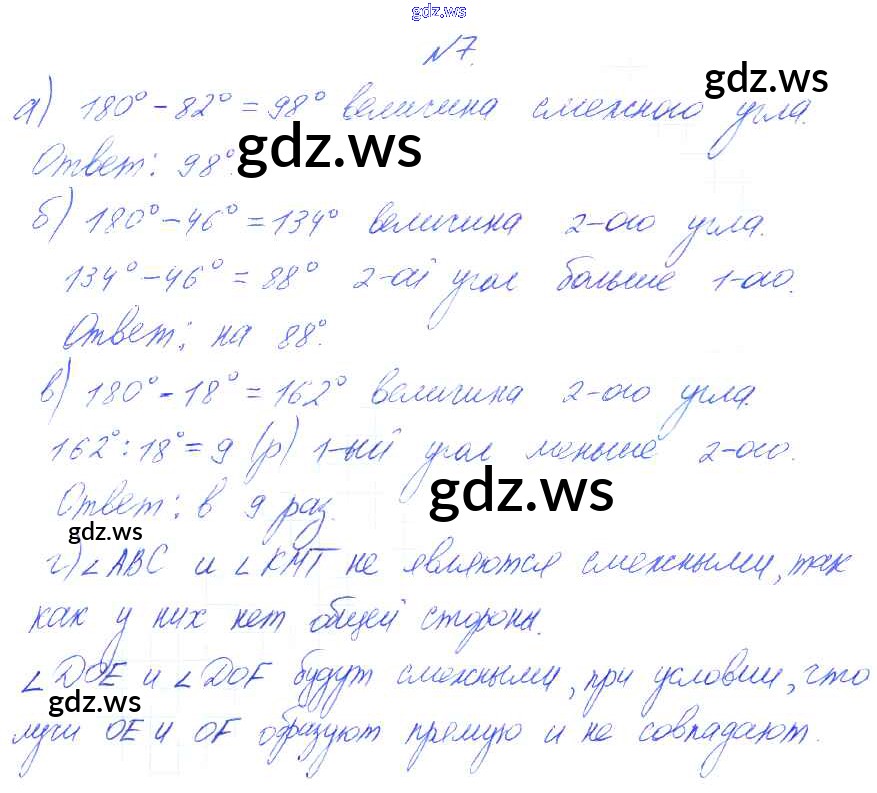 gdz.ws
№7.
gdz.ws
а) 180° - 82° = 98° величина смежного угла.
gdz.ws
Ответ: 98°.
б) 180° - 46° = 134° величина 2-ого угла.
134° - 46° = 88° 2-ой угол больше 1-ого.
Ответ: на 88°.
в) 180° - 18° = 162° величина 2-ого угла.
162° : 18° = 9 (р) 1-ый угол меньше 2-ого.
gdz.ws
Ответ: в 9 раз.
gdz.ws
г) ∠ABC и ∠KMT не являются смежными, так
как у них нет общей стороны.
∠DOE и ∠DOF будут смежными, при условии, что
gdz.ws
лучи OE и OF образуют прямую и не совпадают.